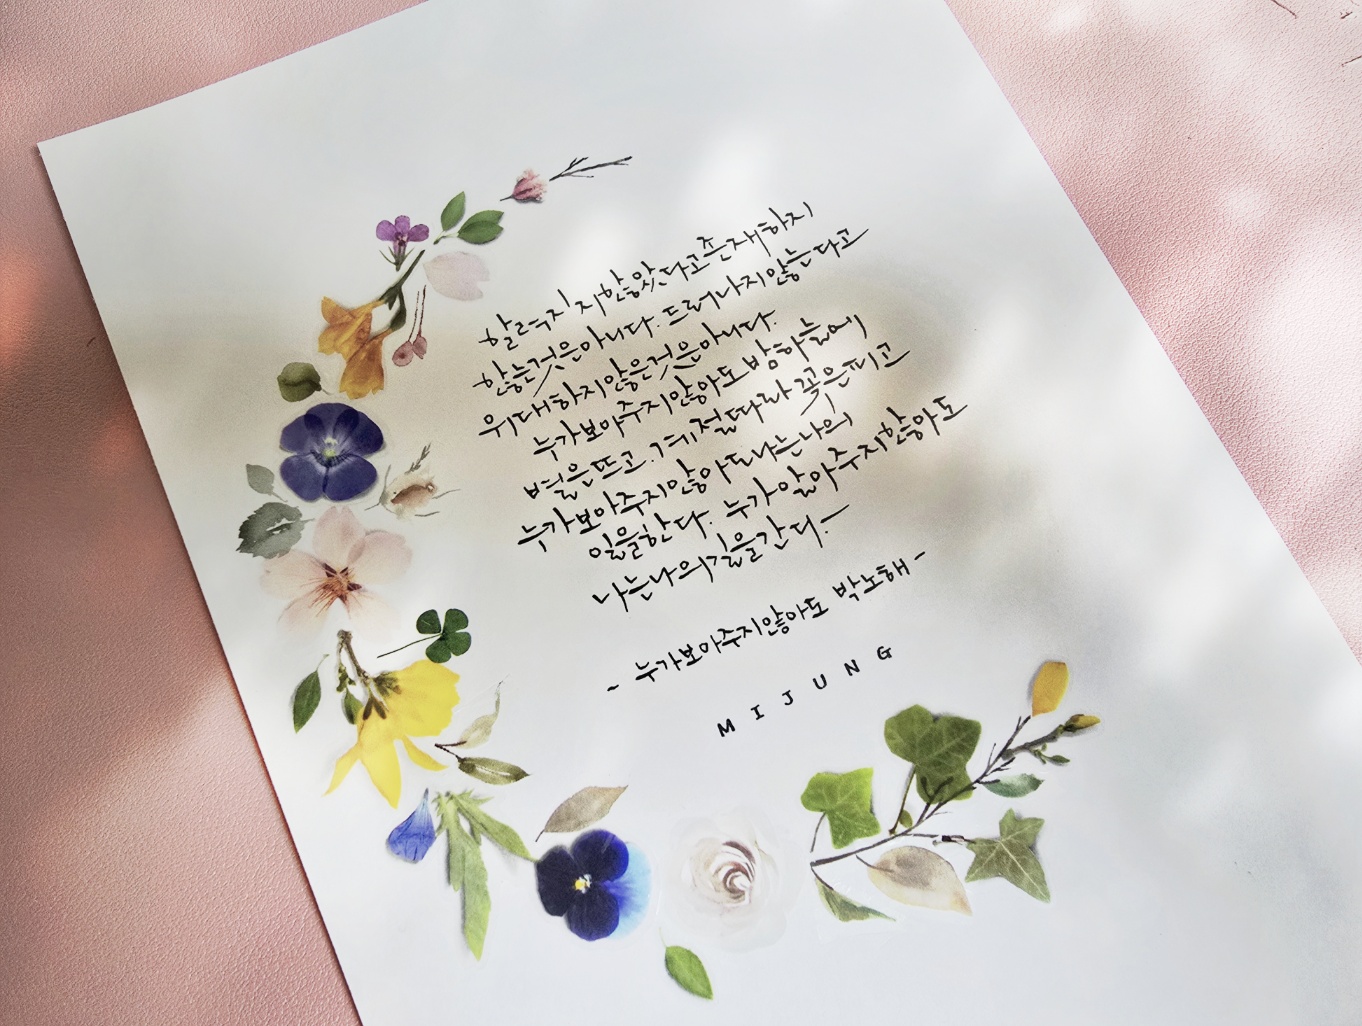 알려지지 않았다고 존재하지
않는 것은 아니다. 드러나지 않는다고
위대하지 않은 것은 아니다.
누가 보아주지 않아도 밤하늘에
별은 뜨고. 계절따라 꽃은 피고
누가 보아주지 않아도 나는 나의
일을 한다. 누가 알아주지 않아도
나는 나의 길을 간다.
- 누가 보아주지 않아도 박노해 -
MIJUNG